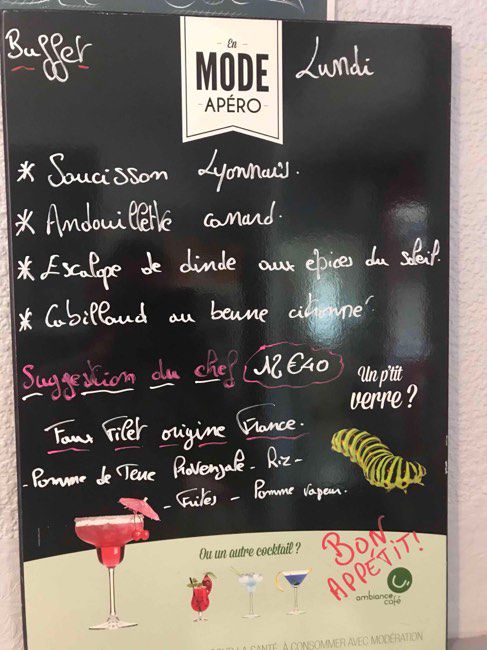 Buffet
En
MODE
APÉRO
Lundi
* Saucisson Lyonnais.
* Andouillette canard.
* Escalope de dinde aux epices du soleil.
* Cabillaud au beurre citronné
Suggestion du chef 12€40
Un p'tit
verre ?
Faux Filet origine France.
- Pomme de Terre Provençale - Riz -
- Frites - Pomme vapeur.
Ou un autre cocktail ?
BON
APPÉTIT!
ambiance
café
LA SANTÉ, À CONSOMMER AVEC MODÉRATION